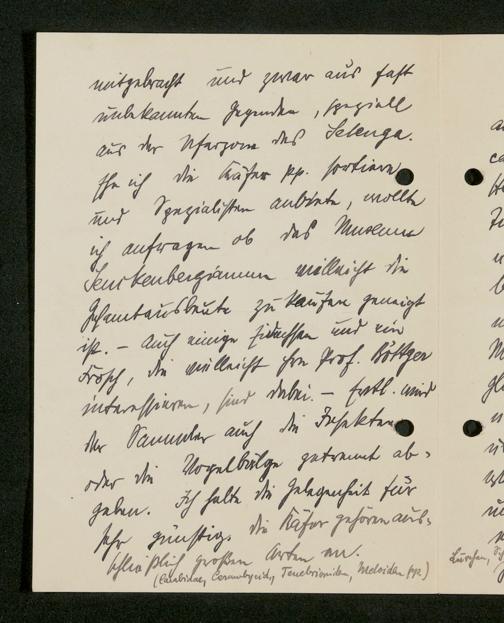 mitgebracht und zwar aus fast
unbekannten Gegenden, speziell
aus der Uferzone des Selenga.
Ehe ich die Käfer pp. sortiere
und Spezialisten anbiete, wollte
ich anfragen ob das Museum
Senckenbergianum vielleicht die
Gesamtausbeute zu kaufen geneigt
ist. – Auch einige Eidechsen und ein
Frosch, die vielleicht Hrn Prof. Böttger
interessieren, sind dabei. – Evtl. wird
der Sammler auch die Insekten
oder die Vogelbälge getrennt ab-
geben. Ich halte die Gelegenheit für
sehr günstig. die Käfer gehören aus-
schließlich großen Arten an.
(Carabidae, Cerambyciden, Tenebrioniden, Meloiden pp.)